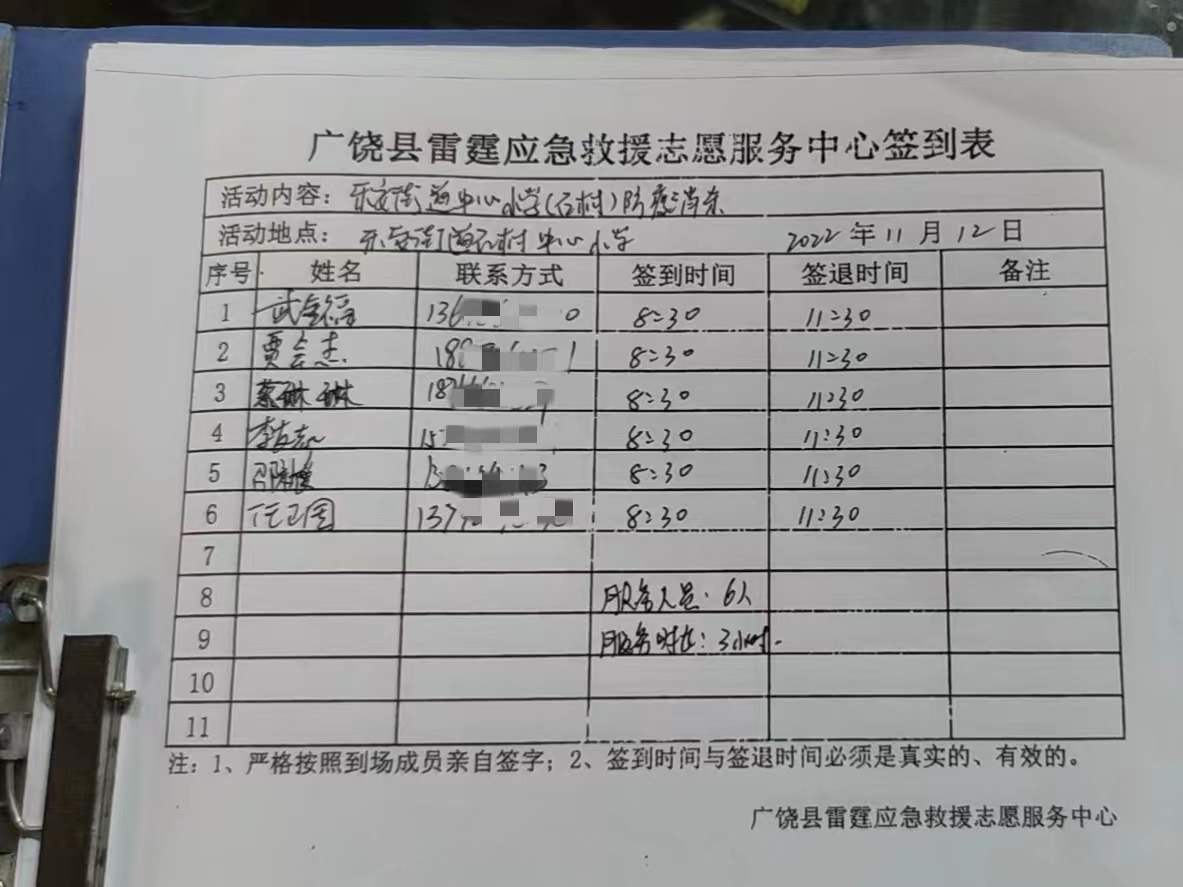 广饶县雷霆应急救援志愿服务中心签到表
活动内容: 乐安街道中心小学(石村)防疫消杀
活动地点: 乐安街道石村中心小学 2022年11月12日
序号 姓名 联系方式 签到时间 签退时间 备注
1 8:30 11:30
2 贾会杰 8:30 11:30
3 蔡琳琳 8:30 11:30
4 李友志 8:30 11:30
5 8:30 11:30
6 任卫国 8:30 11:30
7
8 服务人员: 6人
9 服务时长: 3小时.
10
11
注: 1、严格按照到场成员亲自签字; 2、签到时间与签退时间必须是真实的、有效的。
广饶县雷霆应急救援志愿服务中心